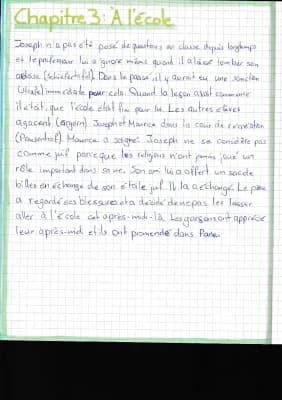 Chapitre 3: À l'école
Joseph n'a pas été posé de questions en classe depuis longtemps
et le professeur lui a ignoré même quand il a laissé tomber son
ardoise (Schiefertafel). Dans le passé il y aurait eu une sanction
(Strafe) immédiate pour cela. Quand la leçon avait commencé
il était, que l'école était fini pour lui. Les autres élèves
agacent (ärgern) Joseph et Maurice dans la cour de récréation
(Pausenhof). Maurice a saigné. Joseph ne se considère pas
comme juif parce que les religions n'ont jamais joué un
rôle important dans sa vie. Son ami lui a offert un sac de
billes en échange de son étoile juif. Il l'a échangé. Le père
a regardé ses blessures et a décidé de ne pas les laisser
aller à l'école cet après-midi-là. Les garçons ont apprécié
leur après-midi et ils ont promené dans Paris.